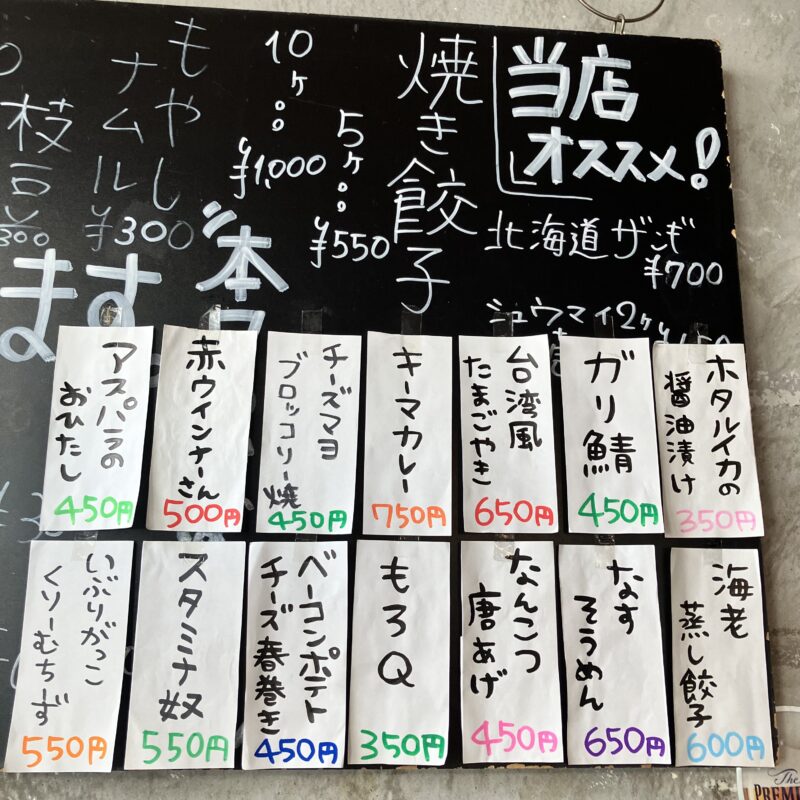 当店
オススメ!
北海道ザンギ
¥700
焼き餃子
5ヶ
¥550
10ヶ
¥1,000
もやし
ナムル
¥300
枝豆
ます
本
ホタルイカの
醤油漬け
350円
ガリ鯖
450円
台湾風
たまごやき
650円
キーマカレー
750円
チーズマヨ
ブロッコリー焼
450円
赤ウインナーさん
500円
アスパラの
おひたし
450円
海老
蒸し餃子
600円
なす
そうめん
650円
なんこつ
唐あげ
450円
もろQ
350円
ベーコンポテト
チーズ春巻き
450円
スタミナ奴
550円
いぶりがっこ
くりーむちーず
550円
The